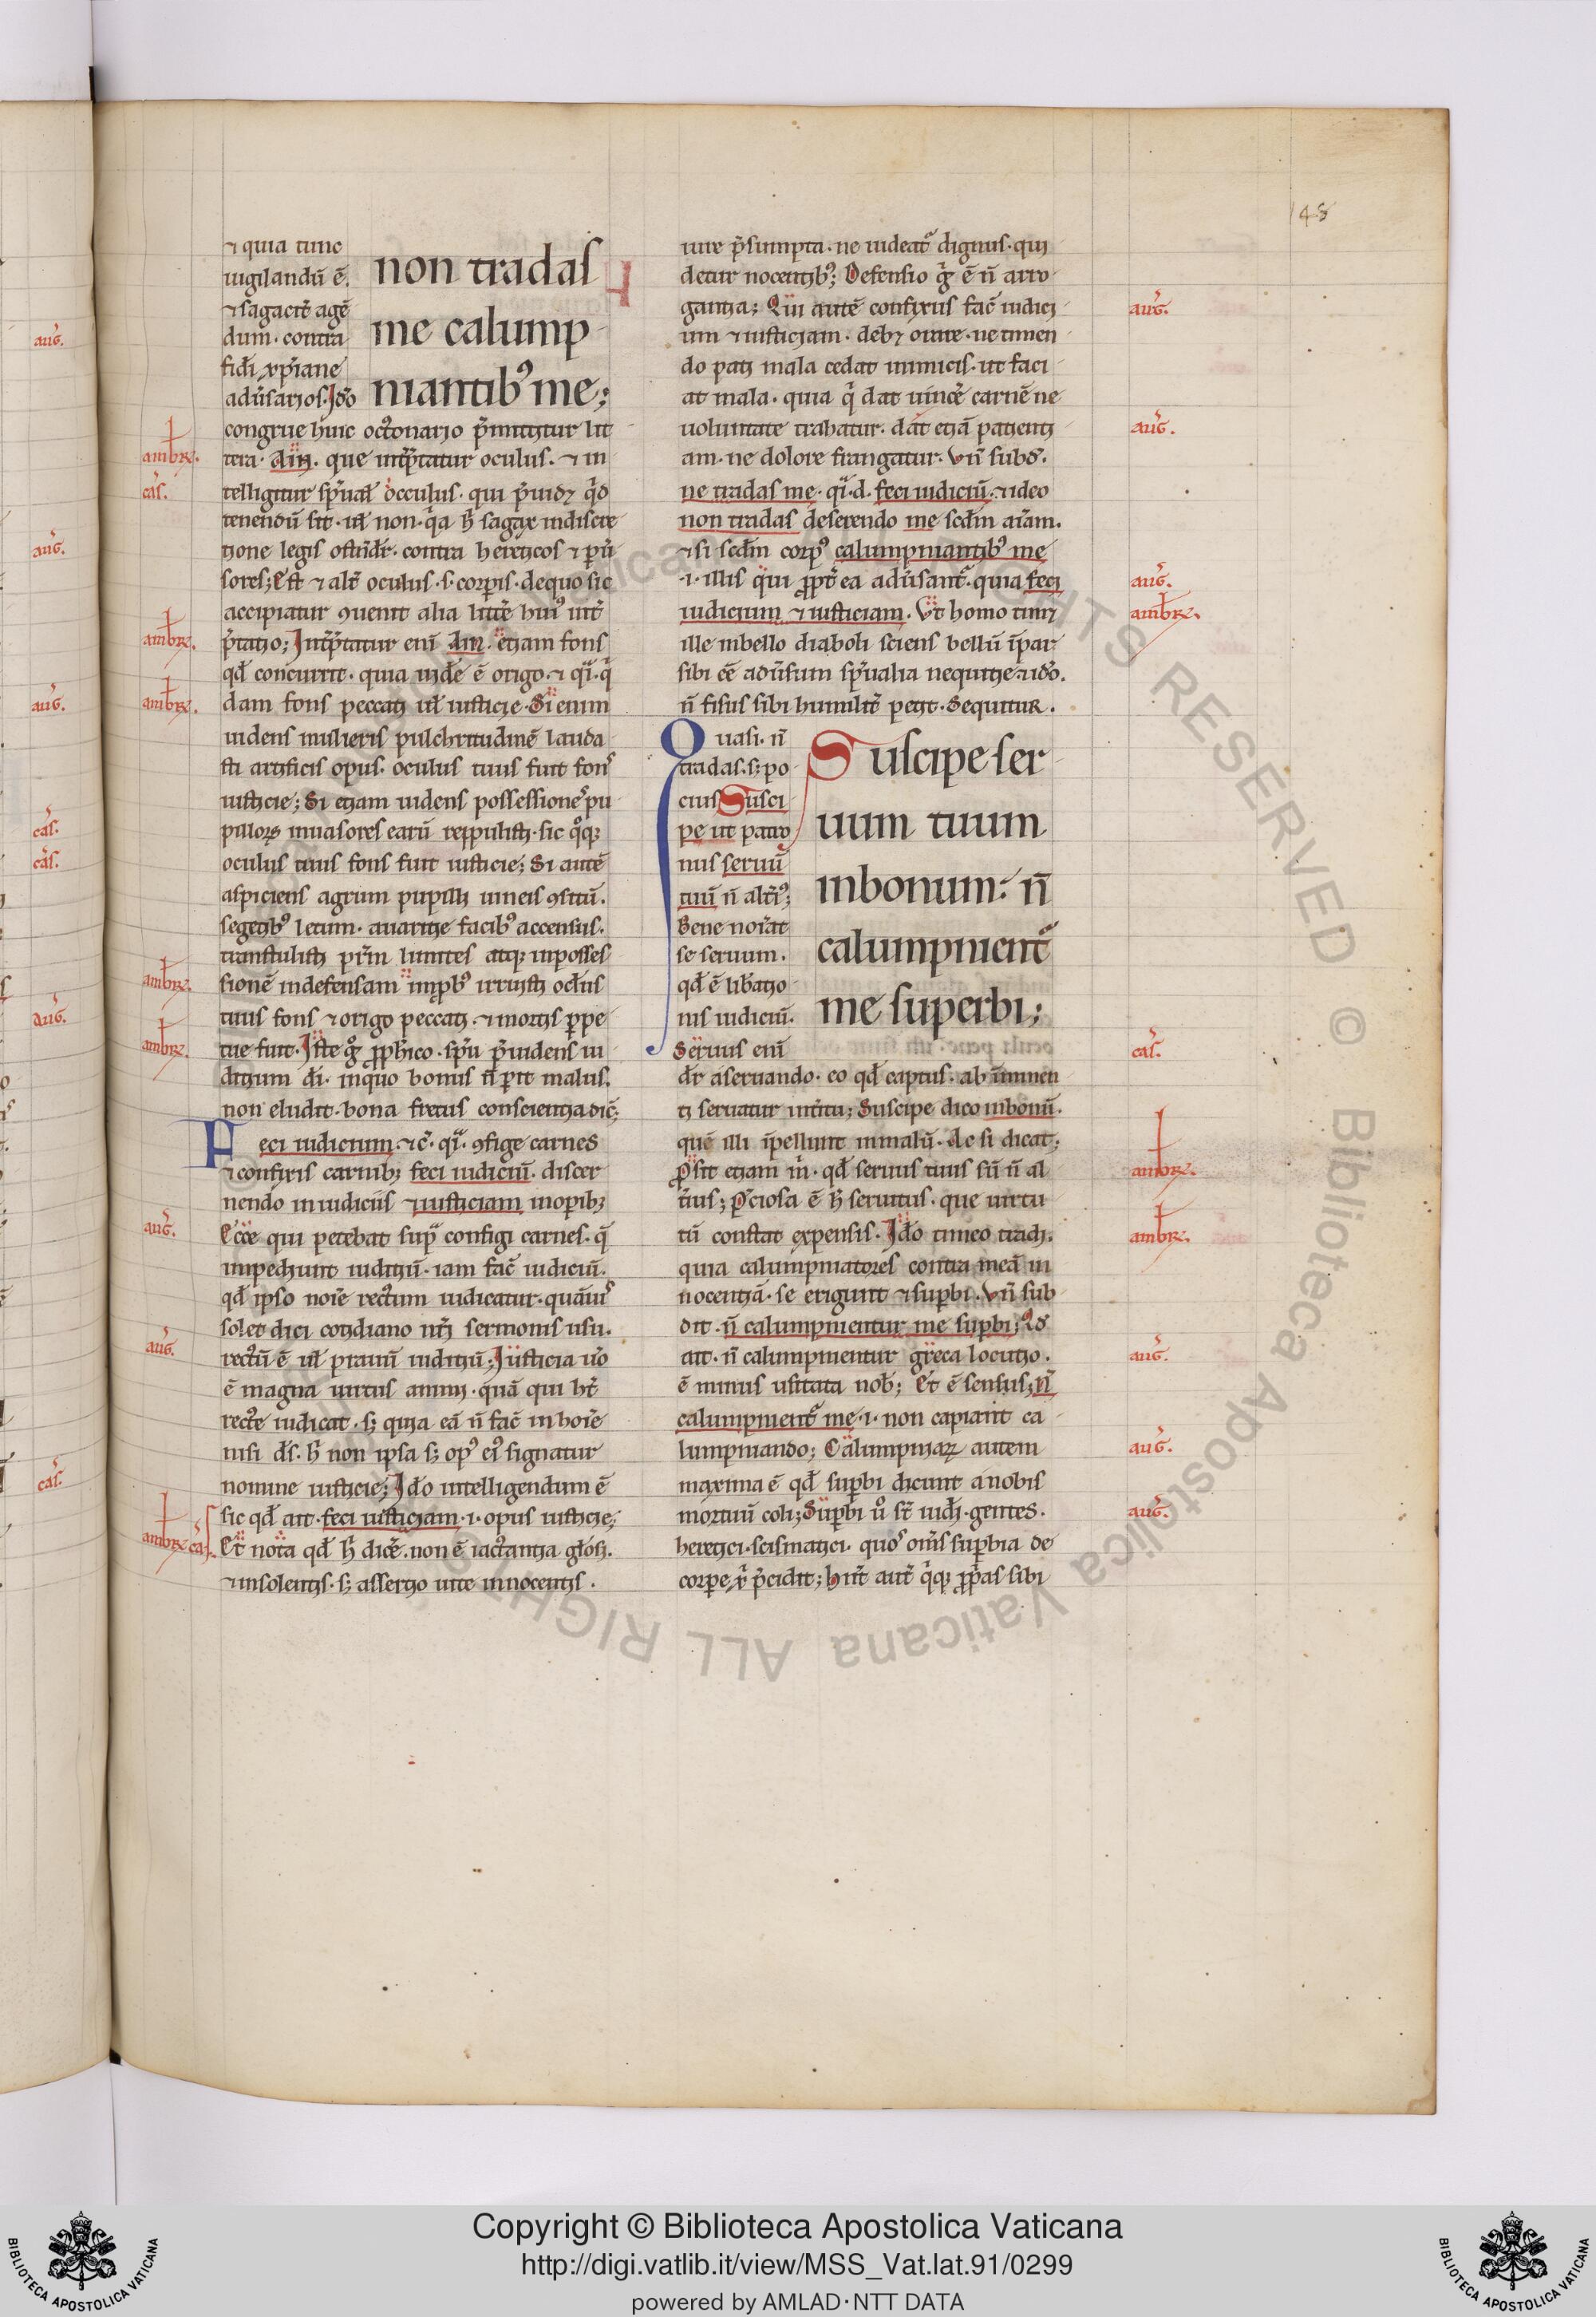 148
⁊ quia tunc
uigilandū ē.
⁊ sagacit̄ agē
dum. contra
fidi xp̄iane
adu̾sarios. Ido̾
non tradas
me calump
niantib᾽ me;
congrue huic octonario p̄mittitur lit
tera. Ain. que int̾p̄tatur oculus. ⁊ in
telligitur sp̄ual̄ occulus. qui p̄uidꝫ qd̄
tenendū sit. ul̄ non. q̄a h̄ sagax indiscre
tione legis ostēdit̄. contra hereticos ⁊ p̄u̾
sores; Est ⁊ alt̾ oculus. s. corp̄is. de quo sic
accipiatur ꝯuenit alia litt̾e hui᾽ int̾
p̄tatio; Int̾p̄tatur eni Ain. etiam fons
qd̄ concurrit. quia inde ē origo. ⁊ q̄i. q̄
dam fons peccati ul̄ iusticie. Si enim
uidens mulieris pulchritudinē lauda
sti artificis opus. oculus tuus fuit fons
iusticie; Si etiam uidens possessione᾽ pu
pilloꝝ inuasores earū reppulisti. sic q̊qꝫ
oculus tuus fons fuit iusticie; Si autē
aspiciens agrum pupilli uineis ꝯsitū.
segetib᾽ letum. auaritie facib᾽ accensus.
transtulisti p̄m limites atqꝫ inposses
sionē indefensam imp̄b᾽ irruisti oc̄lus
tuus fons ⁊ origo peccati. ⁊ mortis ꝑpe
tue fuit. Iste g̊ ꝓph̄ico. sp̄u p̄uidens iu
ditium di. inquo bonus n̄ ꝑit malus.
non eludit. bona fretus conscientia dic̄;
Feci iudicium. ⁊c̄. q̄i. ꝯfige carnes
⁊ confixis carnibꝫ feci iudiciū. discer
nendo in iudiciis ⁊ iusticiam inopibꝫ
Ecce qui petebat sup̄ configi carnes. q̄
impediunt iuditiū. iam fac̄ iudiciū.
qd̄ ipso noīe rectum iudicatur. quāuis
solet dici cotidiano nr̄i sermonis usu.
rectū ē ul̄ prauū iuditiū; Iusticia u̾o
ē magna uirtus animi. quā qui ht̄
recte iudicat. sꝫ quia eā n̄ fac̄ in hoīe
nisi ds̄. h̄ non ipsa sꝫ op᾽ ei᾽ signatur
nomine iusticie; Ido̾ intelligendum ē
sic qd̄ ait. feci iusticiam. i. opus iusticie;
Et nota qd̄ h̄ dic̄e. non ē iactantia glōsi.
⁊ insolentis. sꝫ assertio uite innocentis.
uire p̄sumpta. ne uideat᾽ dignus. qui
detur nocentib᾽; Defensio g̊ ē n̄ arro
gantia; Qui autē confixus fac̄ iudici
um ⁊ iusticiam. debꝫ orare. ne timen
do pati mala cedat inimicis. ut faci
at mala. quia q̄ dat uinc̄e carnē ne
uoluntate trahatur. dat etiā patienti
am. ne dolore frangatur. Vn̄ subd̾.
ne tradas me. q̄i. d. feci iudiciū. ⁊ ideo
non tradas deserendo me scd̄m aīam.
⁊ si scd̄m corp᾽ calumpniantib᾽ me
.i. illis qui ꝓpt̾ ea adu̾sant᾽. quia feci
iudicium ⁊ iusticiam. Vt homo timꝫ
ille in bello diaboli sciens bellū īpar
sibi eē adu̾sum sp̄ualia nequitie ⁊ ido̾.
n̄ fisus sibi humilit̾ petit. Sequitur.
Quasi. n̄
tradas. sꝫ po
cius Susci
pe ut patro
nus seruū
tuū n̄ alt̾i᾽;
Bene norat
se seruum.
qd̄ ē lib̄atio
nis iudiciū.
Seruus eni
Suscipe ser
uum tuum
inbonum: n̄
calumpnient᾽
me superbi;
dr̄ aseruando. eo qd̄ captus. ab imminen
ti seruatur int̾itu; Suscipe dico inbonū.
quē illi īpellunt in malū. Ac si dicat.
ꝓsit etiam m̄. qd̄ seruus tuus sū n̄ al
t̾ius; P̄ciosa ē h̄ seruitus. que uirtu
tū constat expensis. Ido̾ timeo tradi.
quia calumpniatores contra meā in
nocentiā. se erigunt ⁊ sup̄bi. Vn̄ sub
dit. n̄ calumpnientur me sup̄bi; Qd̾
ait. n̄ calumpnientur greca locutio.
ē minus usitata nob̄; Et ē sensus; N̄
calumpnient᾽ me. i. non capiant ca
lumpniando; Calumpniaꝝ autem
maxima ē qd̄ sup̄bi dicunt anobis
mortuū coli; Sup̄bi u̾o st̄ iudi. gentes.
heretici. scismatici. quos om̄s sup̄bia de
corpe x̄ p̄cidit; hn̄t aut̄ q̊qꝫ ꝓp̄as sibi
aug̾.
ambꝝ.
cas̾.
aug̾.
ambꝝ.
aug̾.
ambꝝ.
cas̾.
cas̾.
ambꝝ.
aug̾.
ambꝝ.
aug̾.
aug̾.
cas̾.
ambꝝ cas̾.
aug̾.
aug̾.
aug̾.
ambꝝ.
cas̾.
ambꝝ.
ambꝝ.
aug̾.
aug̾.
aug̾.
© Biblioteca Apostolica Vaticana ALL RIGHTS RESERVED
Copyright © Biblioteca Apostolica Vaticana
http://digi.vatlib.it/view/MSS_Vat.lat.91/0299
powered by AMLAD·NTT DATA
BIBLIOTECA APOSTOLICA VATICANA
BIBLIOTECA APOSTOLICA VATICANA